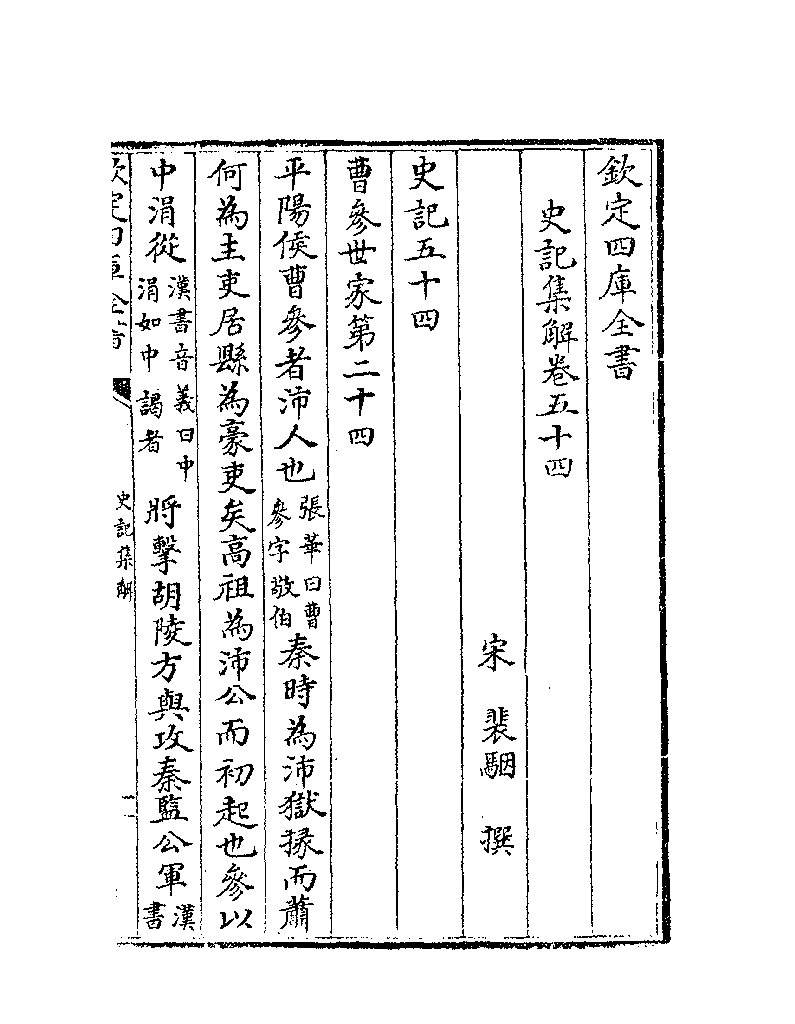 欽定四庫全書
史記集解卷五十四
宋　裴駰　撰
史記五十四
曹參世家第二十四
平陽侯曹參者沛人也張華曰曹參字敬伯秦時為沛獄掾而蕭
何為主吏居縣為豪吏矣高祖為沛公而初起也參以
中涓從漢書音義曰中涓如中謁者將擊胡陵方與攻秦監公軍漢書
欽定四庫全書
史記集解
一